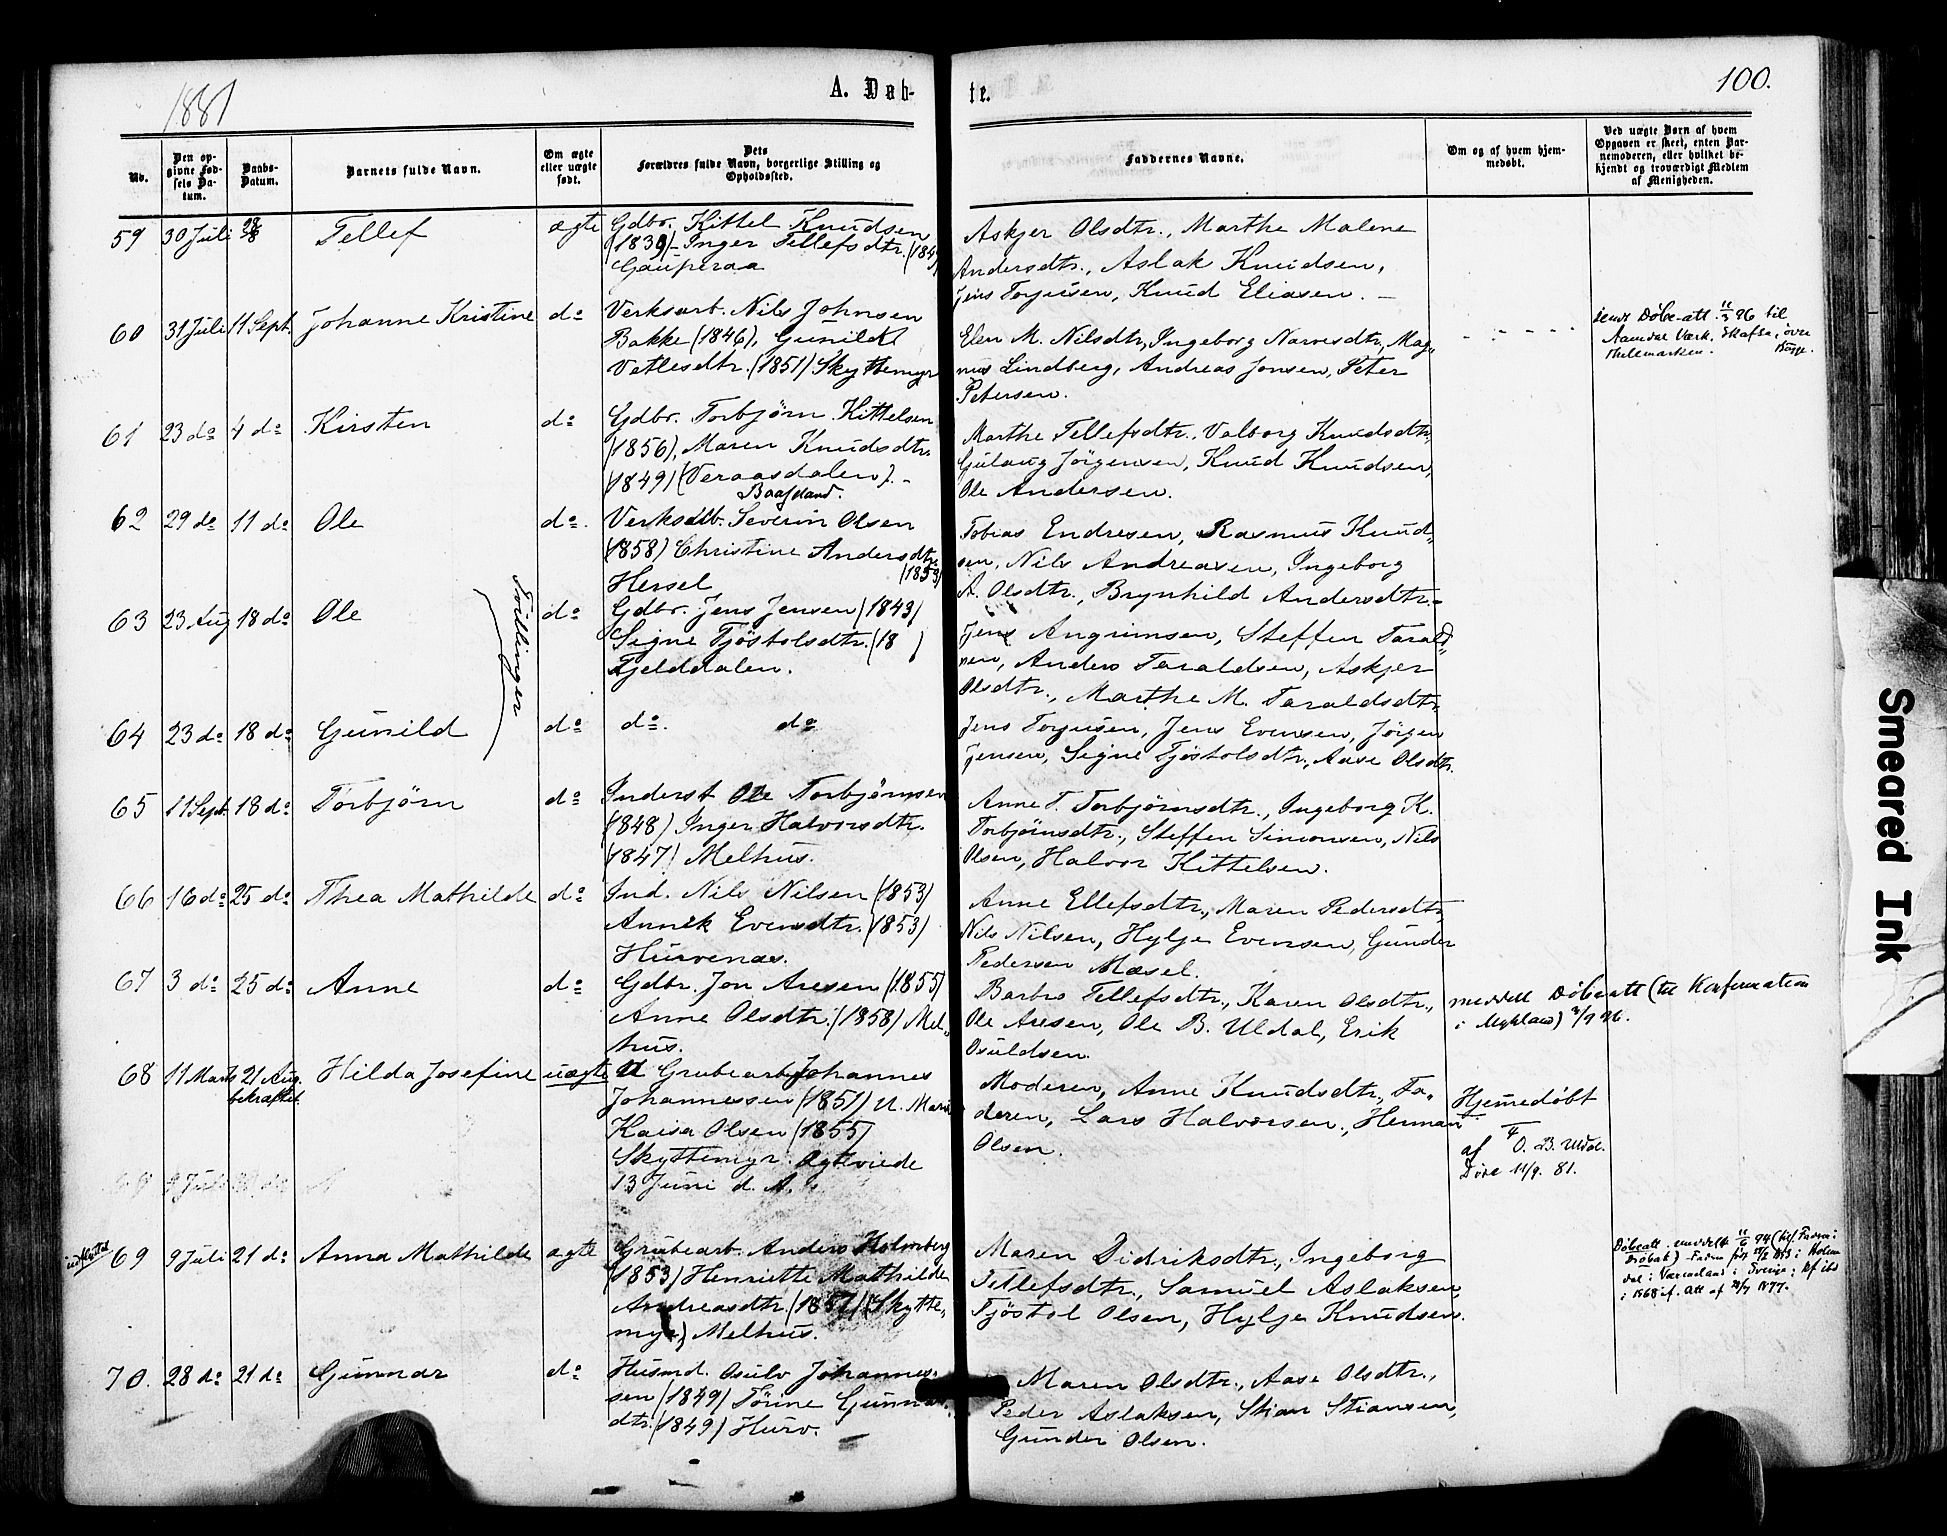 1881
A. Døb-
te.
100.
Nr.
Den op-
givne Fød-
sels Da-
tum.
Daabs-
Datum.
Barnets fulde Navn.
Om ægte
eller uægte
født.
Dets
Forældres fulde Navn, borgerlige Stilling og
Opholdssted.
Faddernes Navne.
Om og af hvem hjem-
medøbt.
Ved uægte Børn af hvem
Opgaven er skeet, enten Bar-
nemoderen, eller hvilket be-
kjendt og troværdigt Medlem
af Menigheden.
59 30 Juli 28/8 Tellef ægte Gdbr. Kittel Knudsen
(1839) - Inger Tellefsdtr. (184
Gauperaa
Askjer Olsdtr., Marthe Malene
Andersdtr., Aslak Knudsen,
Jens Torjusen, Knud Eliasen. -
60 31 Juli 11 Sept. Johanne Kristine do Verksarb. Nils Johnsen
Bakke (1846), Gunild
Vetlesdtr. (1851) Skyttemyr
Elen M. Nilsdtr, Ingeborg Narvesdtr, Mag-
nus Lindberg, Andreas Jonsen, Peter
Petersen.
Døbe-att. 96 til
Aamdal Værk, Skafsø, øvre
Thellemarken.
61 23 do 4 do Kirsten do Gdbr. Torbjørn Kittelsen
(1856), Maren Knudsdtr.
(1849) (Veraasdalen). -
Baasland.
Marthe Tellefsdtr., Valborg Knudsdtr,
Gulaug Jörgensen, Knud Knudsen,
Ole Andersen.
62 29 do 11 do Ole do. Verksarb. Severin Olsen
(1858) Christine Andersdtr.
(1853)
Hessel
Tobias Endresen, Rasmus Knud-
sen, Nils Andreasen, Ingeborg
A. Olsdtr., Brynhild Andersdtr. -
63 23 Aug 18 do Ole do Gdbr. Jens Jensen (1843)
Signe Tjöstolsdtr. (18 )
Fjelddalen.
Tvillinger
Jens Angrimsen, Steffen Tarald-
sen, Anders Taraldsen, Askjer
Olsdtr., Marthe M. Taraldsdtr,
64 23 do 18 do Gunild do do. do
Jens Torjusen, Jens Evensen, Jörgen
Jensen, Signe Tjöstolsdtr., Aase Olsdtr.
65 11 Sept. 18 do Torbjörn do Inderst Ole Torbjörnsen
(1848) Inger Halvorsdtr.
(1847) Melhus.
Anne T. Torbjörnsdtr., Ingeborg K.
Torbjörnsdtr., Steffen Simonsen, Nils
Olsen, Halvor Kittelsen.
66 16 do 25 do Thea Mathilde do Ind. Nils Nilsen (1853)
Anne K Evensdtr. (1853)
Hurvenæs.
Anne Ellefsdtr., Maren Pedersdtr,
Nils Nilsen, Hylje Evensen, Gunder
Pedersen Mæsel.
67 3 do 25 do Anne do Gdbr. Jon Aresen (1855)
Anne Olsdtr. (1858) Mel-
hus.
Barbro Tellefsdtr., Karen Olsdtr.,
Ole Aresen, Ole B. Uldal, Erik
Osuldsen.
meddelt Døbeatt (til Konfirmation
i Mykland) 96.
68 11 Marts 21 Aug. Hilda Josefine uægte U Grubearb. Johannes
bekræftet.
Johannessen (1851) U. Maria
Kaisa Olsen (1855)
Skyttemyr. Ægteviede
13 Juni d. A.
Moderen, Anne Knudsdtr., Fa-
deren, Lars Halvorsen, Herman
Olsen.
Hjemmedøbt
af O. B. Uldal.
Døde 11/9. 81.
9 Juli
indflyttet 69 9 Juli 21 do Anna Mathilde ægte Grubearb. Anders Holmberg
(1853) Henriette Mathilde
Andreasdtr. (1857) (Skytte-
myr) Melhus.
Maren Didriksdtr., Ingeborg
Tellefsdtr., Samuel Aslaksen,
Tjöstol Olsen, Hylje Knudsen.
Døbeatt. meddelt 94 (til Faderen i
Drøbak) - Faderen født 1853 i
i Værmland i Sverige;
i 1868 Att af 1877.
70. 28 do 21 do Gunnar do Husmd. Osulv Johannes-
sen (1849) Törine Gunnars-
dtr. (1849) Hurv.
Maren Olsdtr., Aase Olsdtr.,
Peder Aslaksen, Stian Stiansen,
Gunder Olsen.
Smeared Ink